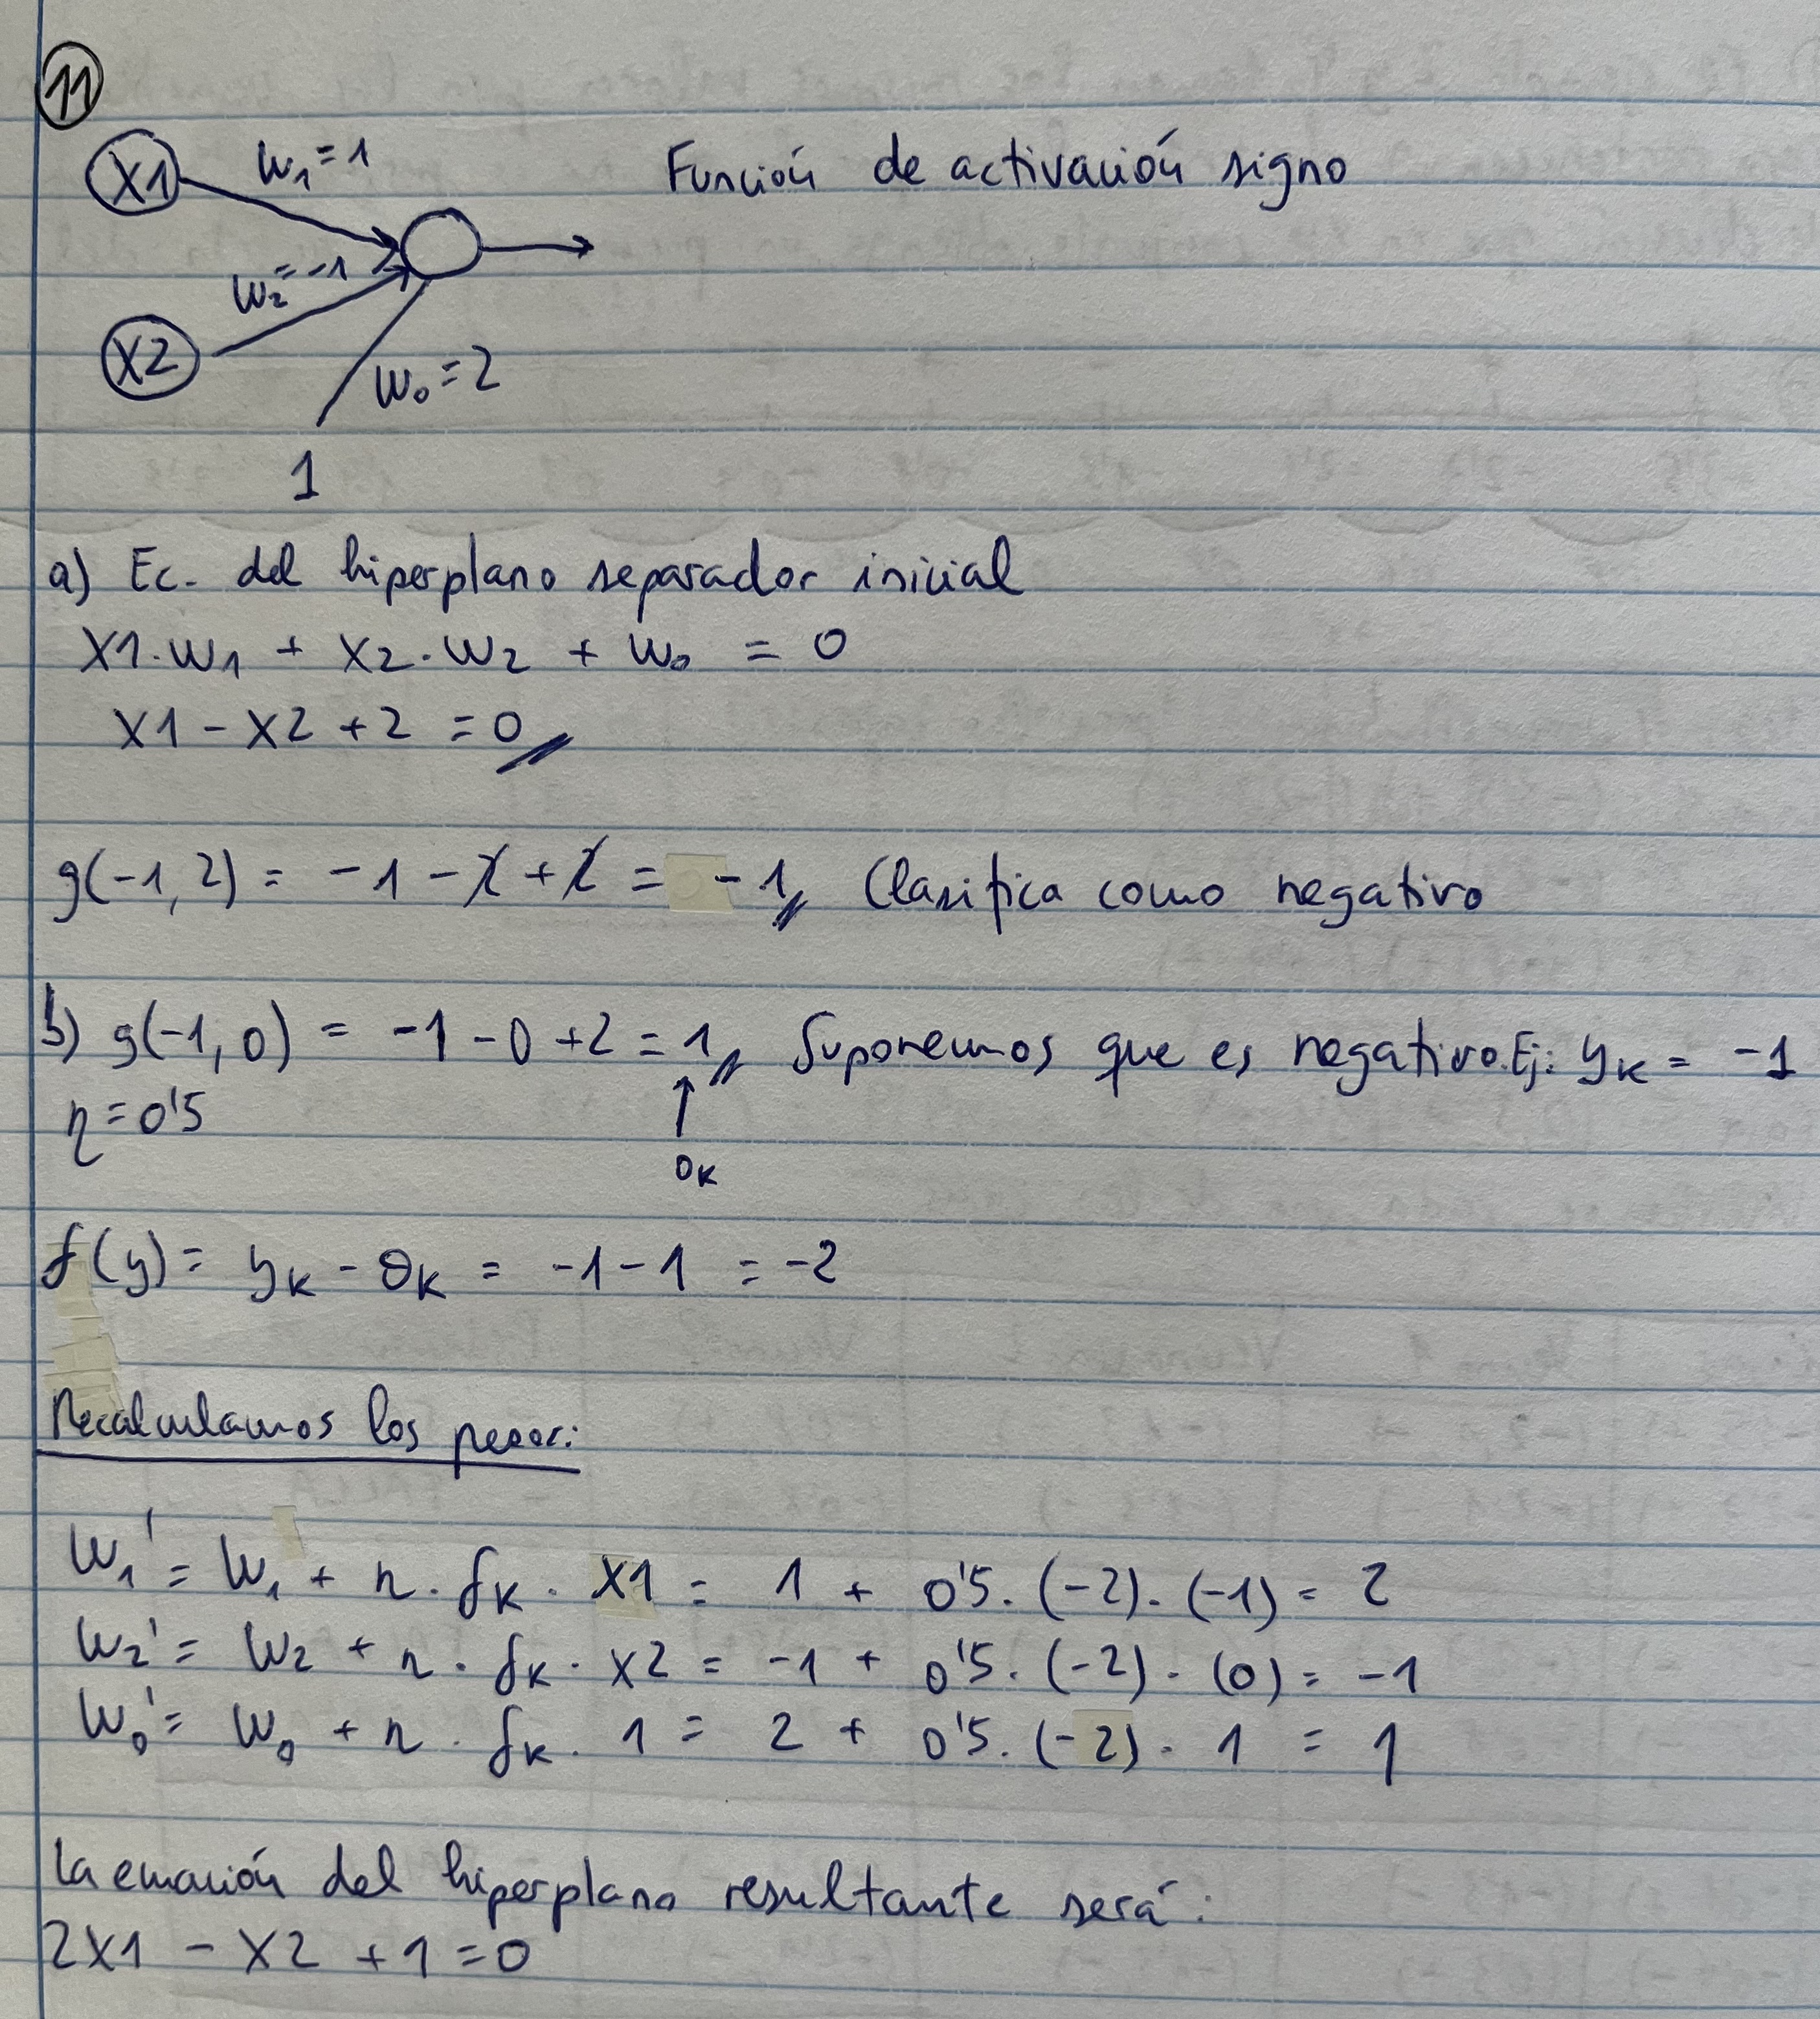 11
X1 W₁=1 Función de activación signo
W₂=-1
X2 W₀=2
1
a) Ec. del hiperplano separador inicial
X1·W1 + X2·W2 + W₀ = 0
X1 - X2 + 2 = 0
g(-1,2) = -1 - 2 + 2 = -1 Clasifica como negativo
b) g(-1,0) = -1 - 0 + 2 = 1 Suponemos que es negativo. Ej: yₖ = -1
η = 0'5 ↑
oₖ
δ(y) = yₖ - oₖ = -1 - 1 = -2
Recalculamos los pesos:
W₁' = W₁ + η · δₖ · X1 = 1 + 0'5 · (-2) · (-1) = 2
W₂' = W₂ + η · δₖ · X2 = -1 + 0'5 · (-2) · (0) = -1
W₀' = W₀ + η · δₖ · 1 = 2 + 0'5 · (-2) · 1 = 1
La ecuación del hiperplano resultante será:
2X1 - X2 + 1 = 0